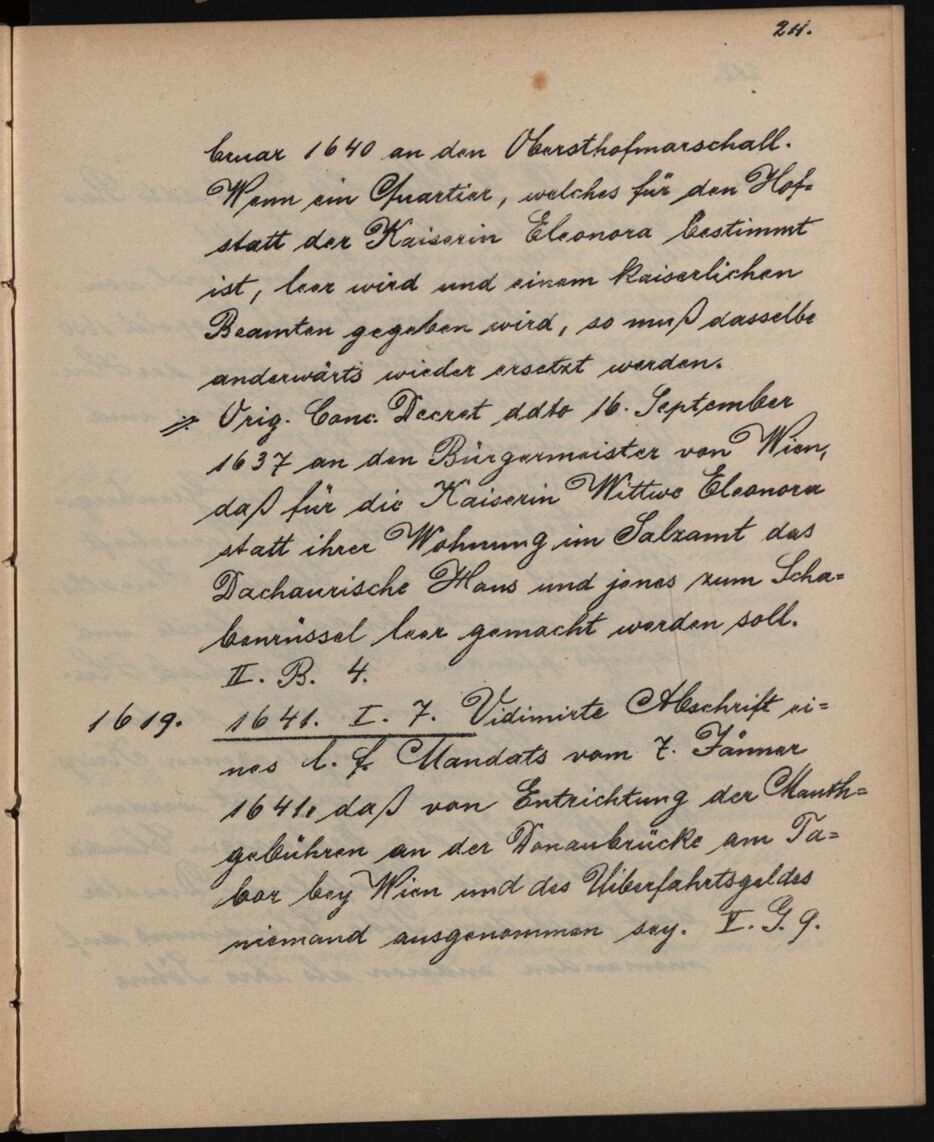 211.
bruar 1640 an den Obersthofmarschall.
Wenn ein Quartier, welches für den Hof=
statt der Kaiserin Eleonora bestimmt
ist, leer wird und einem kaiserlichen
Beamten gegeben wird, so muß dasselbe
anderwärts wieder ersetzt werden.
Orig. Conc. Decret ddto 16. September
1637 an den Bürgermeister von Wien,
daß für die Kaiserin Wittwe Eleonora
statt ihrer Wohnung im Salzamt das
Dachaurische Haus und jenes zum Scha=
benrüssel leer gemacht werden soll.
II. B. 4.
1619. 1641. I. 7. Vidimirte Abschrift ei=
nes l. f. Mandats vom 7. Jänner
1641, daß von Entrichtung der Mauth=
gebühren an der Donaubrücke am Ta=
bor bey Wien und des Uiberfahrtsgeldes
niemand ausgenommen sey. V. G. 9.